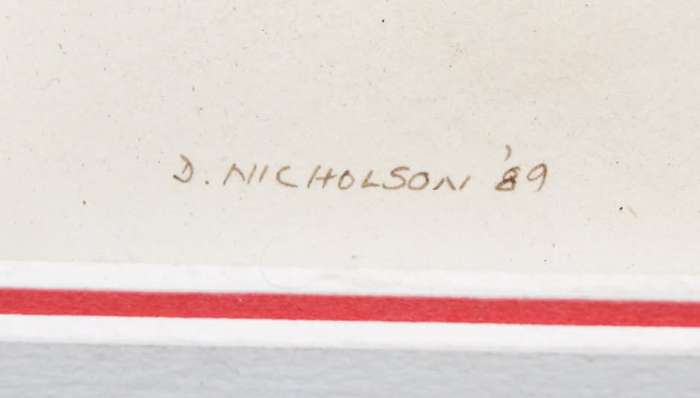 D. NICHOLSON '89